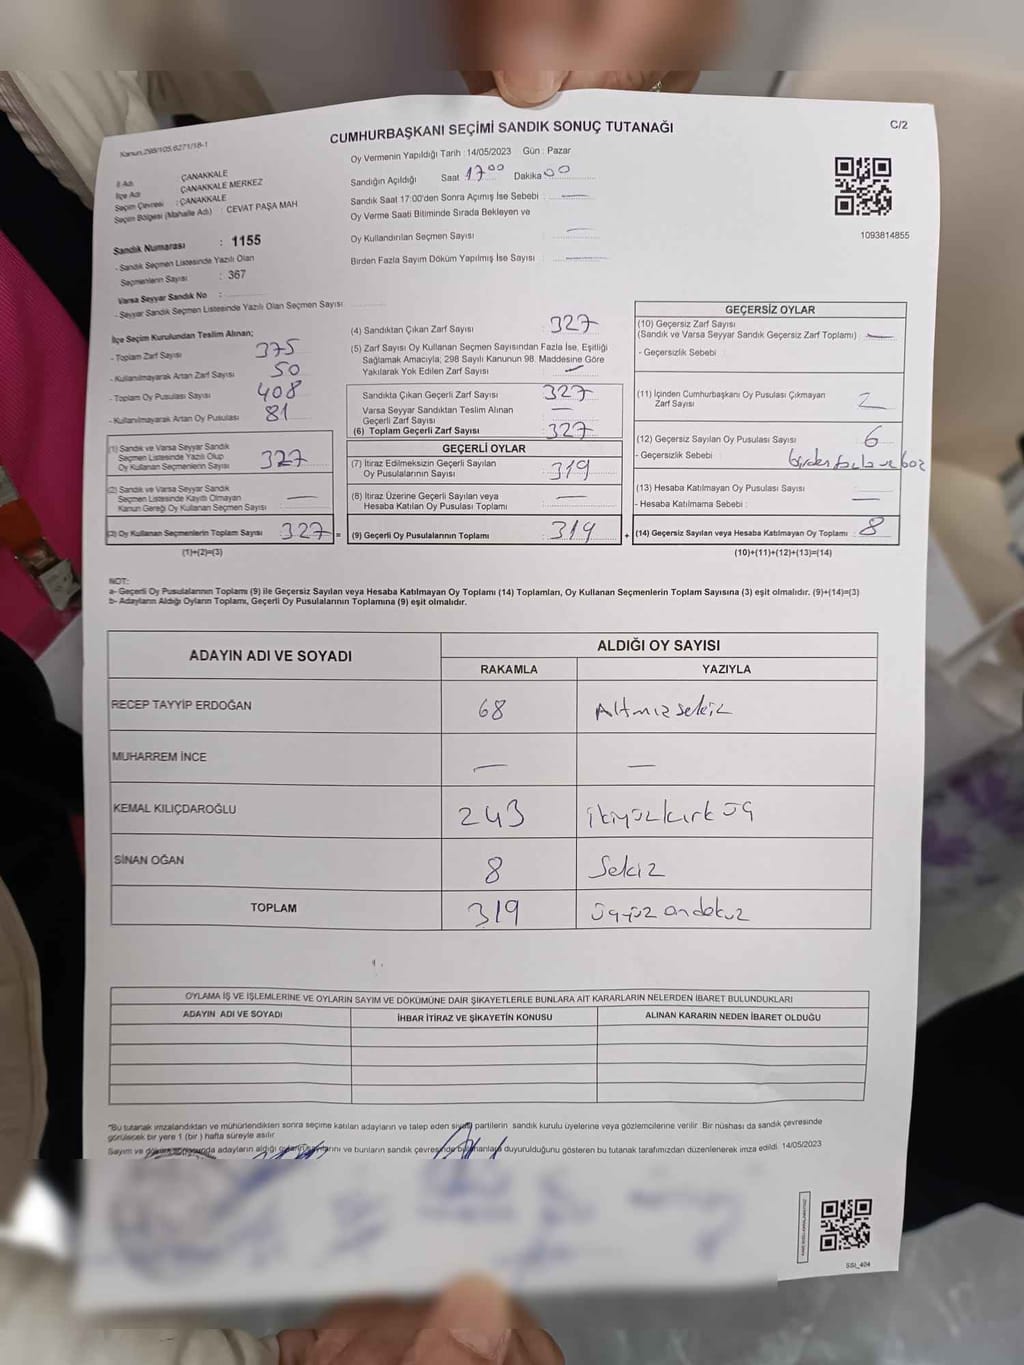 Kanun:298/105,6271/18-1
CUMHURBAŞKANI SEÇİMİ SANDIK SONUÇ TUTANAĞI
C/2
İl Adı : ÇANAKKALE
İlçe Adı : ÇANAKKALE MERKEZ
Seçim Çevresi : ÇANAKKALE
Seçim Bölgesi (Mahalle Adı) : CEVAT PAŞA MAH
Sandık Numarası : 1155
- Sandık Seçmen Listesinde Yazılı Olan
Seçmenlerin Sayısı : 367
Varsa Seyyar Sandık No :
- Seyyar Sandık Seçmen Listesinde Yazılı Olan Seçmen Sayısı:
Oy Vermenin Yapıldığı Tarih : 14/05/2023 Gün : Pazar
Sandığın Açıldığı Saat 17⁰⁰ Dakika 00
Sandık Saat 17:00'den Sonra Açımış İse Sebebi : —
Oy Verme Saati Bitiminde Sırada Bekleyen ve
Oy Kullandırılan Seçmen Sayısı : —
Birden Fazla Sayım Döküm Yapılmış İse Sayısı : —
1093814855
İlçe Seçim Kurulundan Teslim Alınan;
- Toplam Zarf Sayısı 375
- Kullanılmayarak Artan Zarf Sayısı 50
- Toplam Oy Pusulası Sayısı 408
- Kullanılmayarak Artan Oy Pusulası 81
(1) Sandık ve Varsa Seyyar Sandık
Seçmen Listesinde Yazılı Olup
Oy Kullanan Seçmenlerin Sayısı 327
(2) Sandık ve Varsa Seyyar Sandık
Seçmen Listesinde Kayıtlı Olmayan
Kanun Gereği Oy Kullanan Seçmen Sayısı : —
(3) Oy Kullanan Seçmenlerin Toplam Sayısı 327 =
(1)+(2)=(3)
(4) Sandıktan Çıkan Zarf Sayısı : 327
(5) Zarf Sayısı Oy Kullanan Seçmen Sayısından Fazla İse, Eşitliği
Sağlamak Amacıyla; 298 Sayılı Kanunun 98. Maddesine Göre
Yakılarak Yok Edilen Zarf Sayısı : —
Sandıkta Çıkan Geçerli Zarf Sayısı : 327
Varsa Seyyar Sandıktan Teslim Alınan
Geçerli Zarf Sayısı : —
(6) Toplam Geçerli Zarf Sayısı : 327
GEÇERLİ OYLAR
(7) İtiraz Edilmeksizin Geçerli Sayılan
Oy Pusulalarının Sayısı : 319
(8) İtiraz Üzerine Geçerli Sayılan veya
Hesaba Katılan Oy Pusulası Toplamı : —
(9) Geçerli Oy Pusulalarının Toplamı : 319 +
GEÇERSİZ OYLAR
(10) Geçersiz Zarf Sayısı
(Sandık ve Varsa Seyyar Sandık Geçersiz Zarf Toplamı) : —
- Geçersizlik Sebebi :
(11) İçinden Cumhurbaşkanı Oy Pusulası Çıkmayan
Zarf Sayısı : 2
(12) Geçersiz Sayılan Oy Pusulası Sayısı : 6
- Geçersizlik Sebebi : birden fazla ve boz
(13) Hesaba Katılmayan Oy Pusulası Sayısı :
- Hesaba Katılmama Sebebi : —
(14) Geçersiz Sayılan veya Hesaba Katılmayan Oy Toplamı : 8
(10)+(11)+(12)+(13)=(14)
NOT:
a- Geçerli Oy Pusulalarının Toplamı (9) ile Geçersiz Sayılan veya Hesaba Katılmayan Oy Toplamı (14) Toplamları, Oy Kullanan Seçmenlerin Toplam Sayısına (3) eşit olmalıdır. (9)+(14)=(3)
b- Adayların Aldığı Oyların Toplamı, Geçerli Oy Pusulalarının Toplamına (9) eşit olmalıdır.
ADAYIN ADI VE SOYADI
ALDIĞI OY SAYISI
RAKAMLA YAZIYLA
RECEP TAYYİP ERDOĞAN 68 Altmış sekiz
MUHARREM İNCE — —
KEMAL KILIÇDAROĞLU 243 ikiyüzkırk üç
SİNAN OĞAN 8 Sekiz
TOPLAM 319 üçyüz ondokuz
OYLAMA İŞ VE İŞLEMLERİNE VE OYLARIN SAYIM VE DÖKÜMÜNE DAİR ŞİKAYETLERLE BUNLARA AİT KARARLARIN NELERDEN İBARET BULUNDUKLARI
ADAYIN ADI VE SOYADI İHBAR İTİRAZ VE ŞİKAYETİN KONUSU ALINAN KARARIN NEDEN İBARET OLDUĞU
*Bu tutanak imzalandıktan ve mühürlendikten sonra seçime katılan adayların ve talep eden siyasi partilerin sandık kurulu üyelerine veya gözlemcilerine verilir. Bir nüshası da sandık çevresinde
görülecek bir yere 1 (bir ) hafta süreyle asılır.
Sayım ve döküm sonucunda adayların aldığı oyların sayılarını ve bunların sandık çevresinde bulunanlara duyurulduğunu gösteren bu tutanak tarafımızdan düzenlenerek imza edildi. 14/05/2023
SSI_404